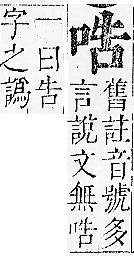 哠
舊註音號多
言說文無哠
一曰告
字之譌